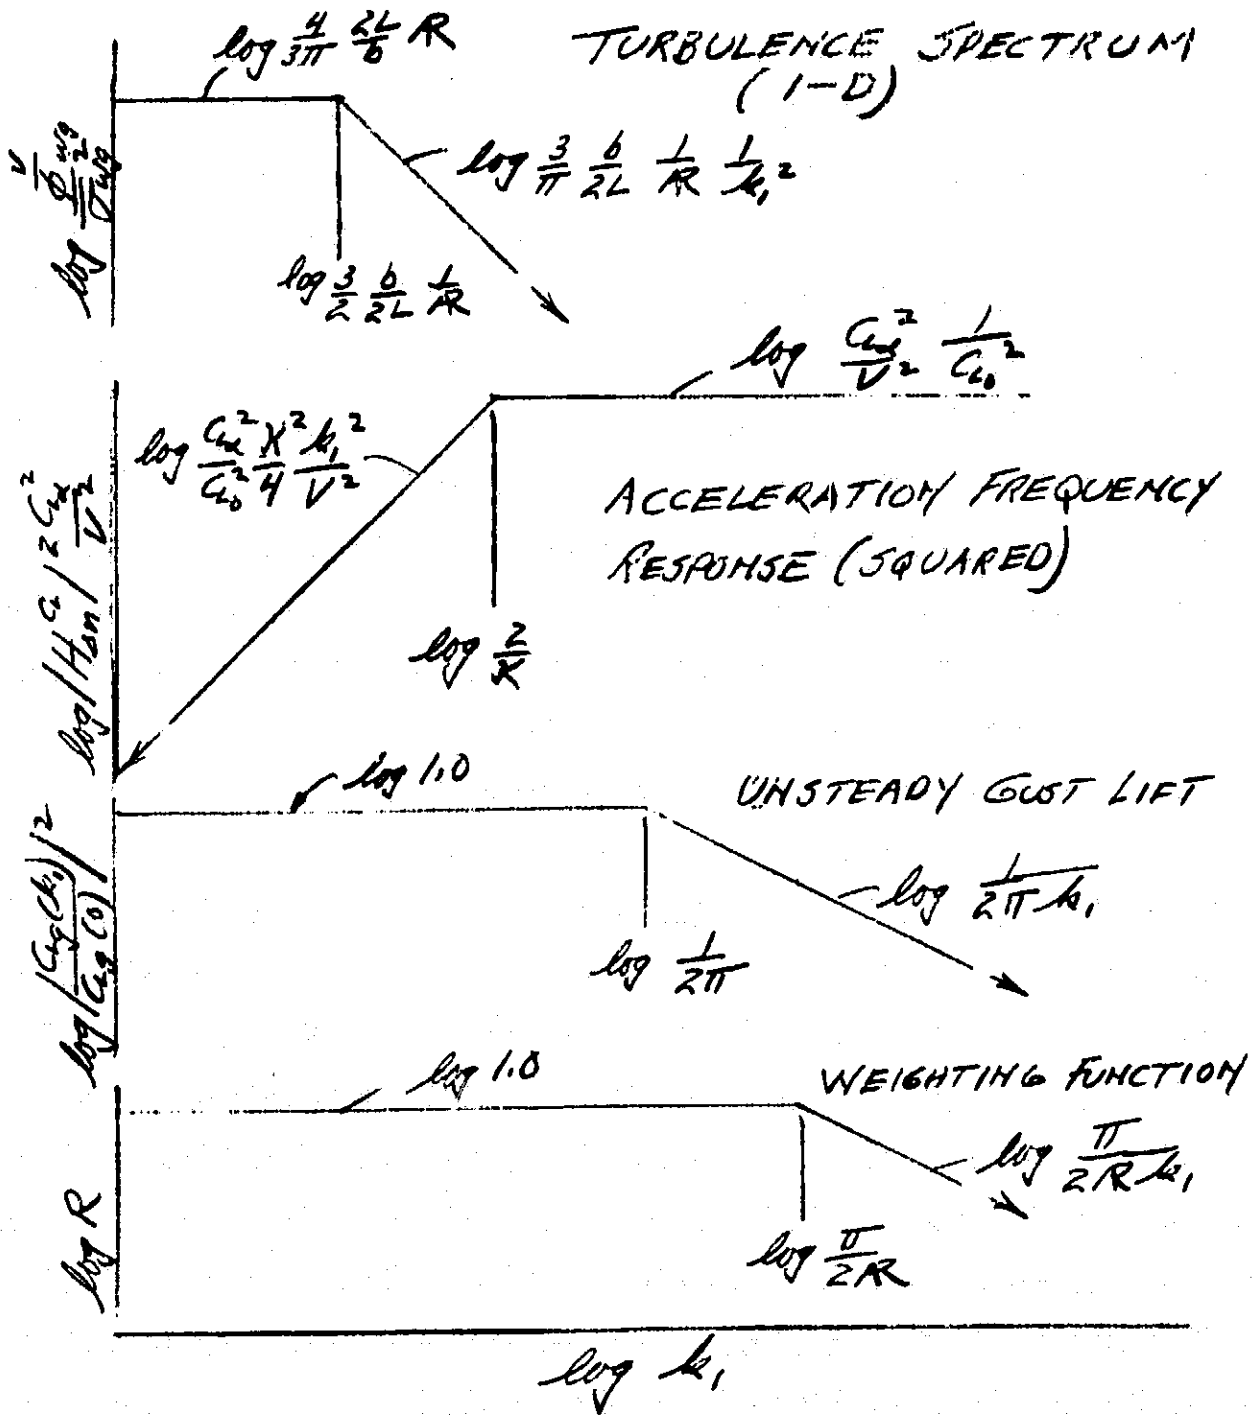 log 4/3π 2L/b AR
TURBULENCE SPECTRUM
(1-D)
log 3/π b/2L 1/AR 1/k₁²
log 3/2 b/2L 1/AR
log C_Lα²/V² 1/C_L₀²
log C_Lα²/C_L₀² K²/4 k₁²/V²
ACCELERATION FREQUENCY
RESPONSE (SQUARED)
log 2/K
log 1.0
UNSTEADY GUST LIFT
log |C_Lg(k₁)/C_Lg(0)|²
log 1/2πk₁
log 1/2π
log 1.0
WEIGHTING FUNCTION
log π/2ARk₁
log R
log π/2AR
log k₁